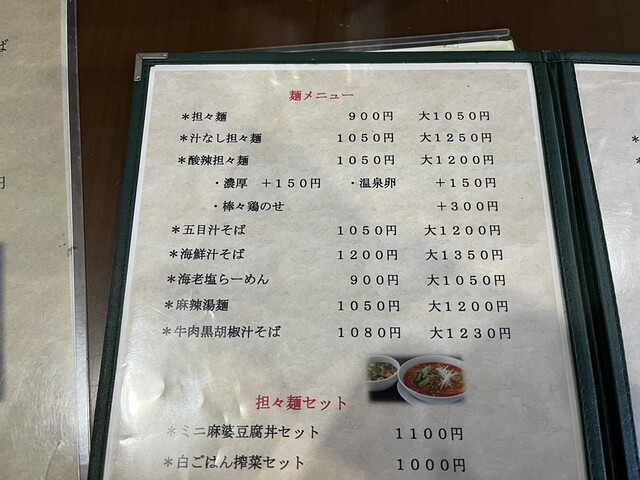 麺メニュー
＊担々麺 ９００円 大１０５０円
＊汁なし担々麺 １０５０円 大１２５０円
＊酸辣担々麺 １０５０円 大１２００円
・濃厚 ＋１５０円 ・温泉卵 ＋１５０円
・棒々鶏のせ ＋３００円
＊五目汁そば １０５０円 大１２００円
＊海鮮汁そば １２００円 大１３５０円
＊海老塩らーめん ９００円 大１０５０円
＊麻辣湯麺 １０５０円 大１２００円
＊牛肉黒胡椒汁そば １０８０円 大１２３０円
担々麺セット
＊ミニ麻婆豆腐丼セット １１００円
＊白ごはん搾菜セット １０００円